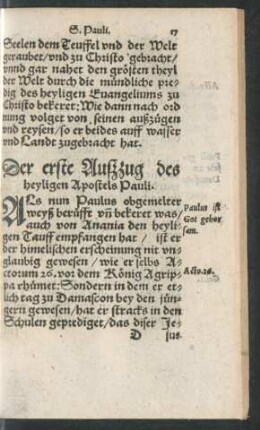 S. Pauli. 17
Seelen dem Teuffel vnd der Welt
geraubet/vnd zu Christo gebracht/
vnnd gar nahet den grösten theyl
der Welt durch die mündliche pre-
dig des heyligen Euangeliums zu
Christo bekeret: Wie dann nach ord
nung volget von seinen außzügen
vnd reysen/so er beides auff wasser
vnd Landt zugebracht hat.
Der erste Außzug des
heyligen Apostels Pauli.
ALs nun Paulus obgemelter
weyß berüfft vn̄ bekeret was/
auch von Anania den heyli-
gen Tauff empfangen hat / ist er
der himelischen erscheinung nit vn-
glaubig gewesen / wie er selbs A-
ctorum 26. vor dem König Agrip-
pa rhümet: Sondern in dem er et-
lich tag zu Damascon bey den jün-
gern gewesen/hat er stracks in den
Schulen geprediget/das diser Je-
D sus
Paulus ist
Got gehor
sam.
Acto. 26.